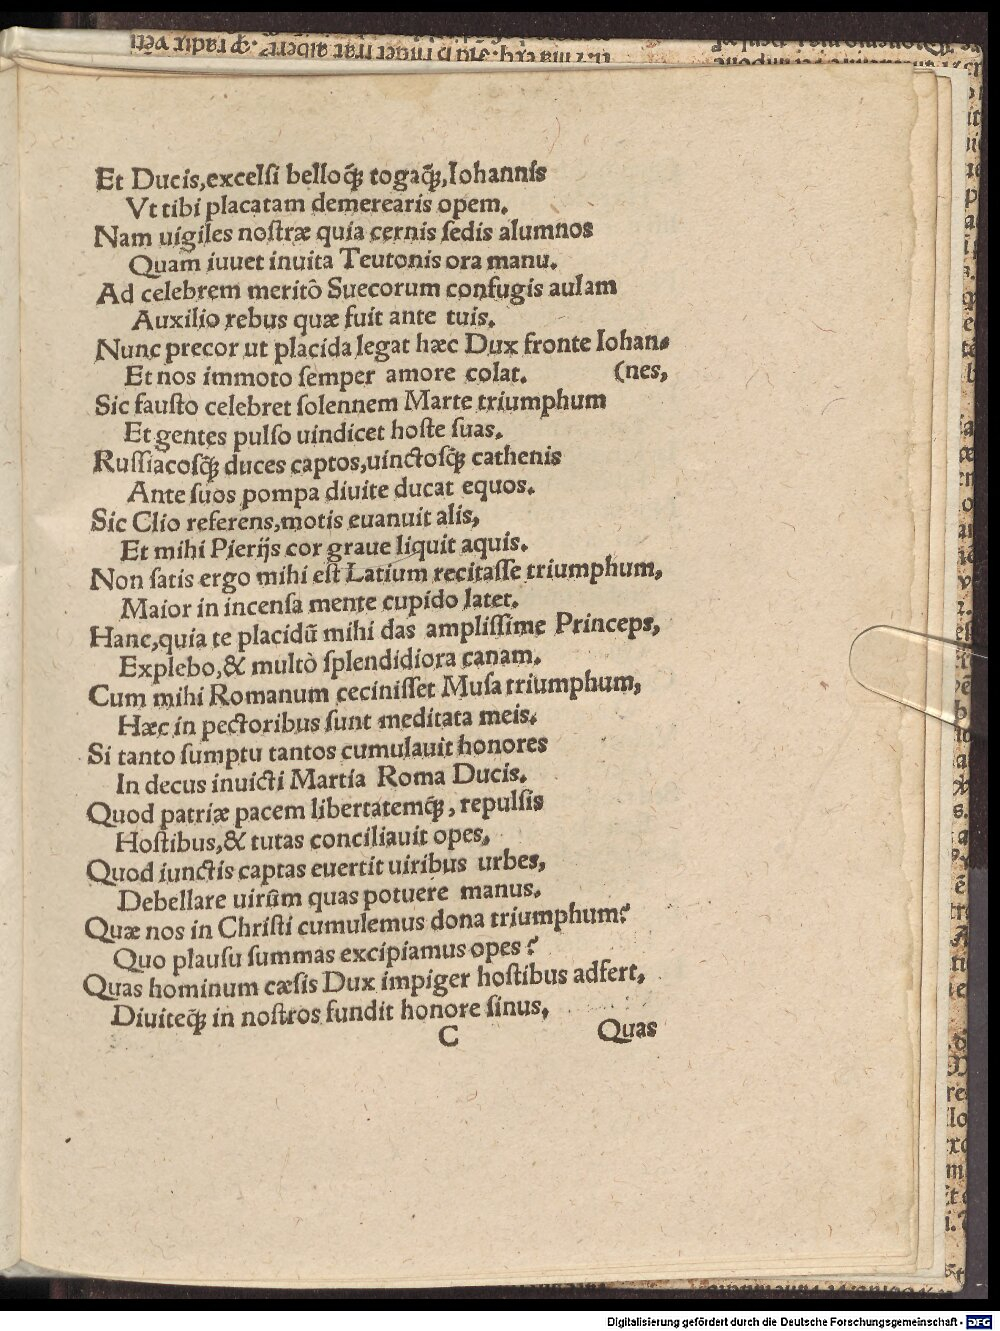 Et Ducis,excelsi belloq́ꝫ togaq́ꝫ,Iohannis
Vt tibi placatam demerearis opem.
Nam uigiles nostræ quia cernis sedis alumnos
Quam iuuet inuita Teutonis ora manu.
Ad celebrem meritò Suecorum confugis aulam
Auxilio rebus quæ fuit ante tuis.
Nunc precor ut placida legat hæc Dux fronte Iohan-
Et nos immoto semper amore colat. (nes,
Sic fausto celebret solennem Marte triumphum
Et gentes pulso uindicet hoste suas.
Russiacosq́ꝫ duces captos,uinctosq́ꝫ cathenis
Ante suos pompa diuite ducat equos.
Sic Clio referens,motis euanuit alis,
Et mihi Pierijs cor graue liquit aquis.
Non satis ergo mihi est Latium recitasse triumphum,
Maior in incensa mente cupido latet.
Hanc,quia te placidũ mihi das amplissime Princeps,
Explebo,& multò splendidiora canam.
Cum mihi Romanum cecinisset Musa triumphum,
Hæc in pectoribus sunt meditata meis.
Si tanto sumptu tantos cumulauit honores
In decus inuicti Martia Roma Ducis.
Quod patriæ pacem libertatemq́ꝫ, repulsis
Hostibus,& tutas conciliauit opes,
Quod iunctis captas euertit uiribus urbes,
Debellare uirûm quas potuere manus.
Quæ nos in Christi cumulemus dona triumphum?
Quo plausu summas excipiamus opes?
Quas hominum cæsis Dux impiger hostibus adfert,
Diuiteq́ꝫ in nostros fundit honore sinus,
C Quas
Digitalisierung gefördert durch die Deutsche Forschungsgemeinschaft - DFG